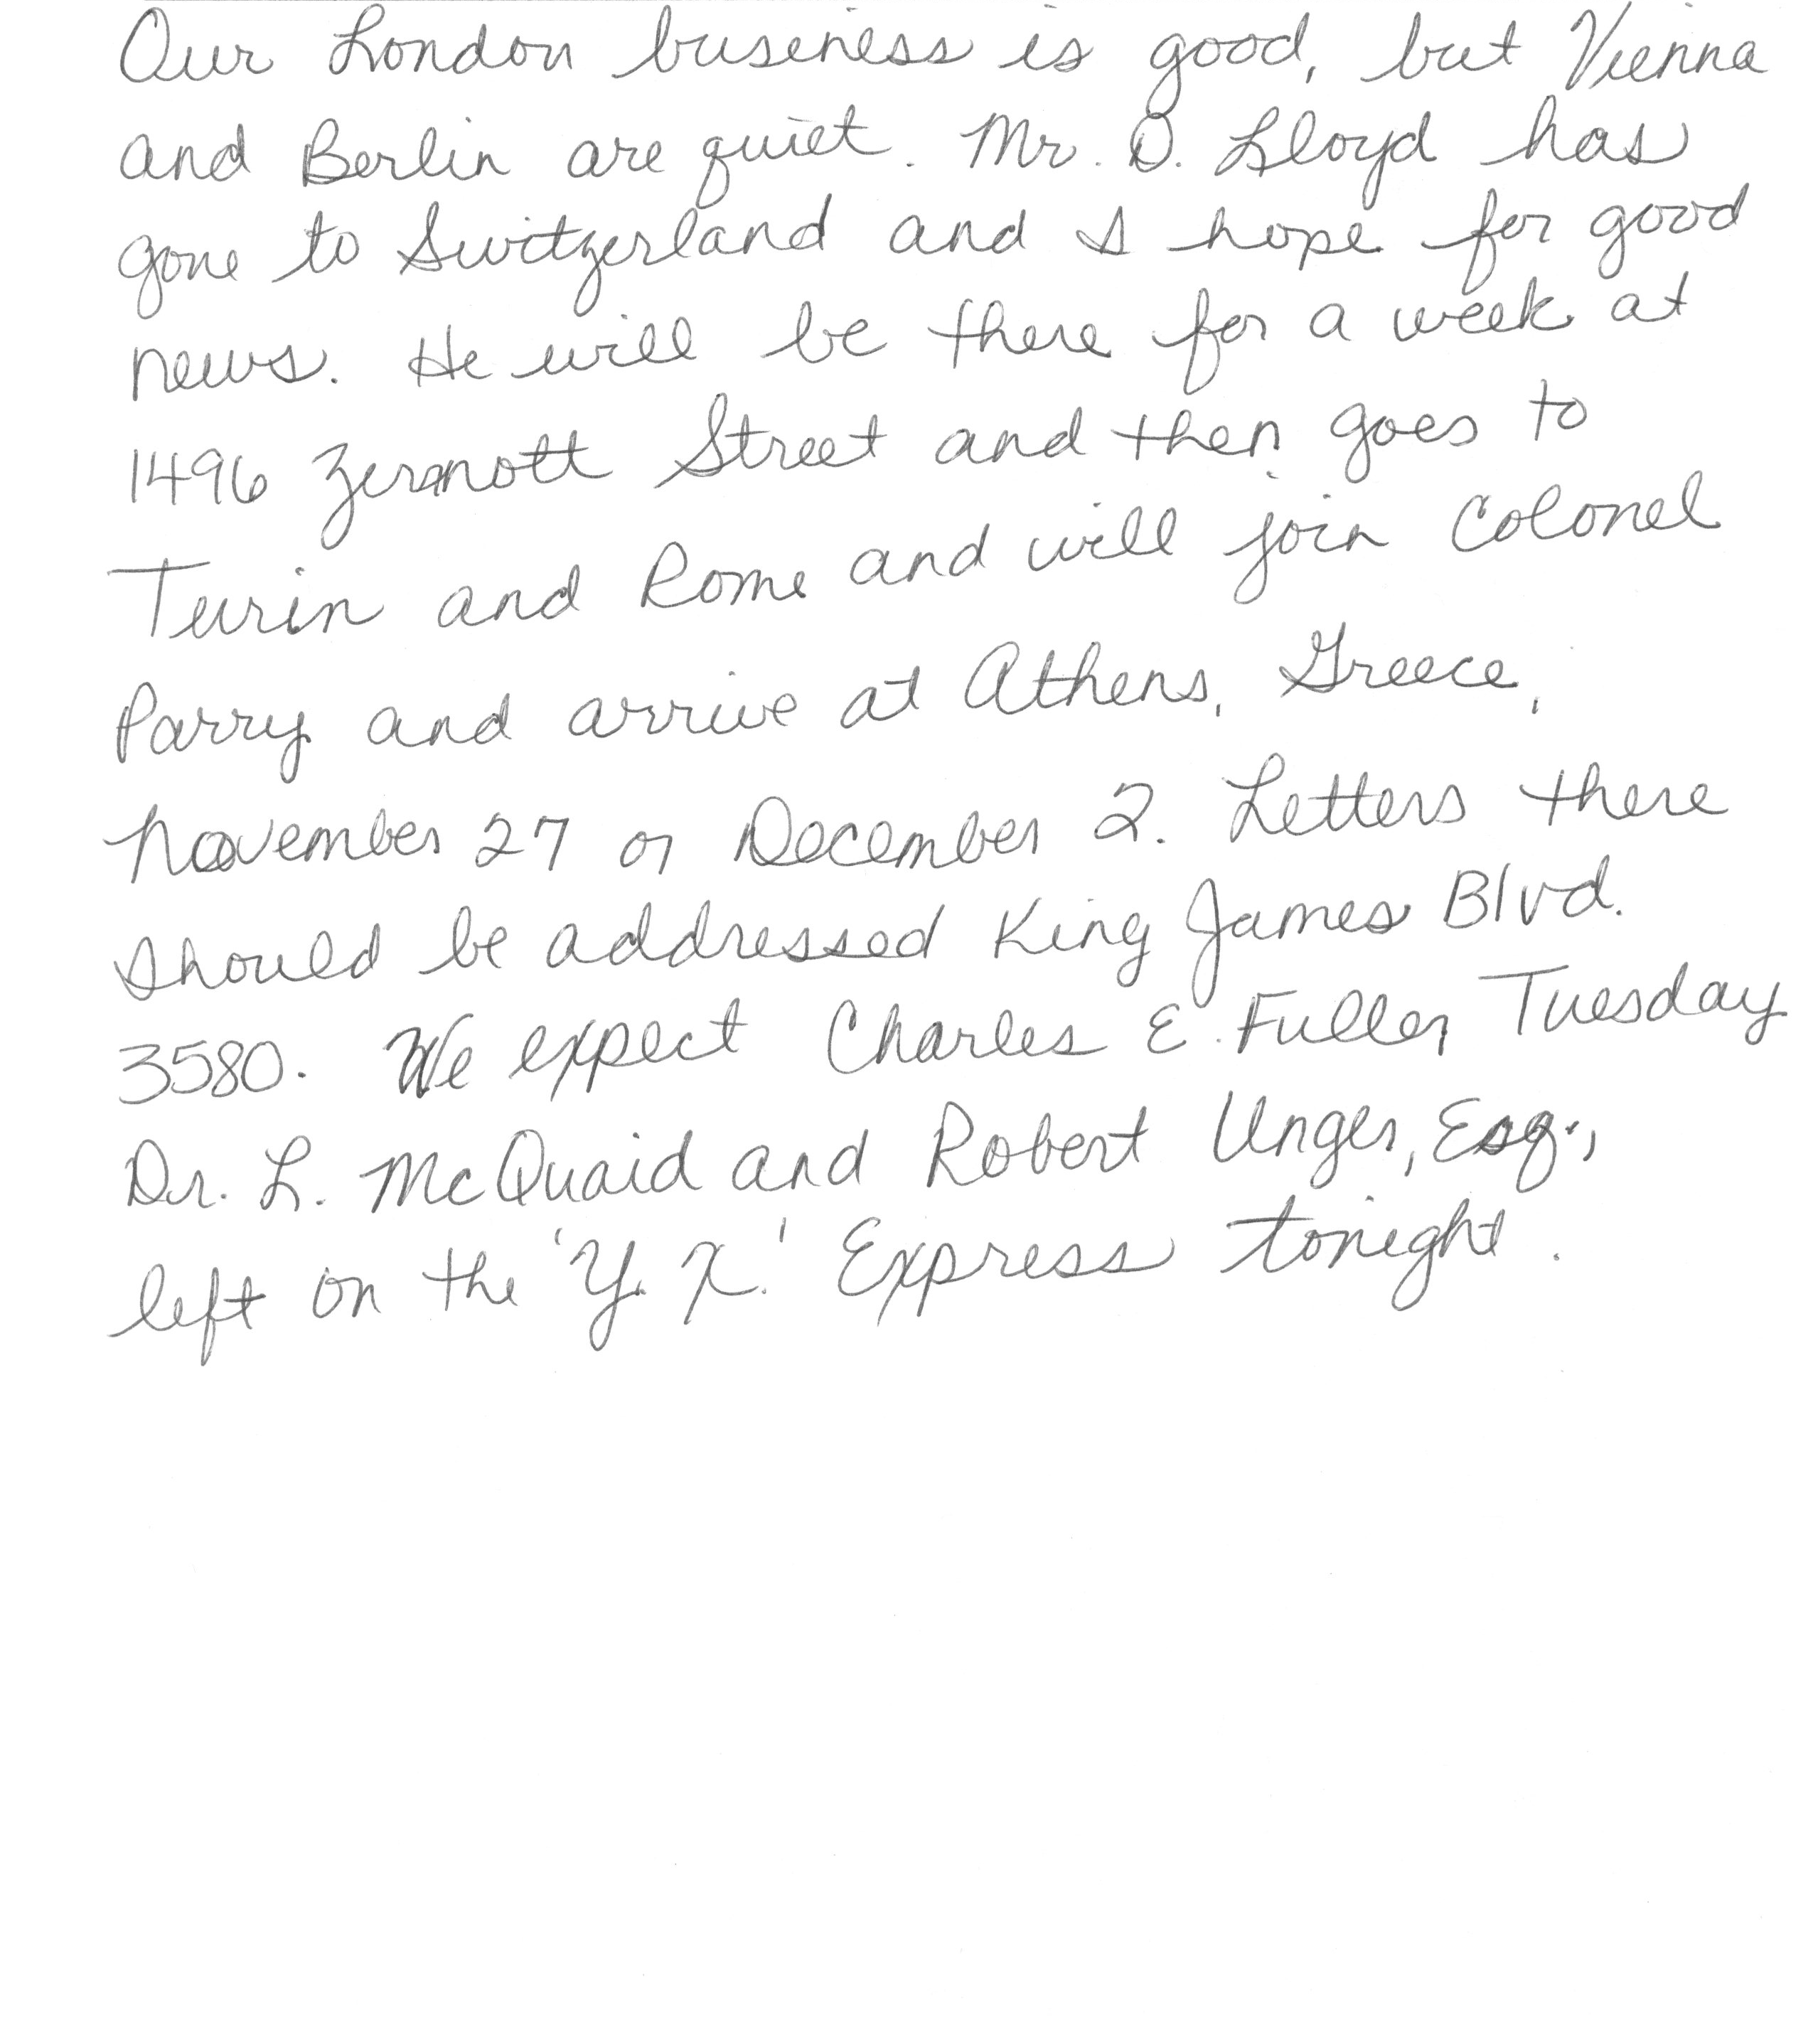 Our London business is good, but Vienna
and Berlin are quiet. Mr. D. Lloyd has
gone to Switzerland and I hope for good
news. He will be there for a week at
1496 Zermott Street and then goes to
Turin and Rome and will join Colonel
Parry and arrive at Athens, Greece,
November 27 or December 2. Letters there
should be addressed King James Blvd.
3580. We expect Charles E. Fuller Tuesday
Dr. L. McQuaid and Robert Unger, Esq.,
left on the 'Y. X.' Express tonight.